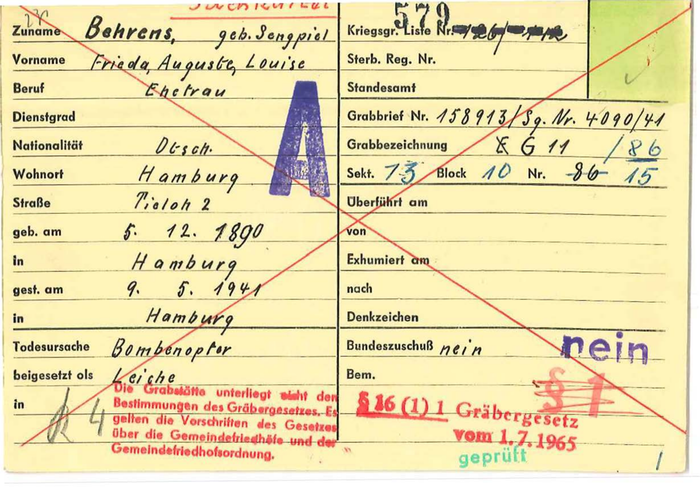 Zuname Behrens, geb. Sengpiel
Vorname Frieda, Auguste, Louise
Beruf Ehefrau
Dienstgrad
Nationalität Dtsch.
Wohnort Hamburg
Straße Tieloh 2
geb. am 5. 12. 1890
in Hamburg
gest. am 9. 5. 1941
in Hamburg
Todesursache Bombenopfer
beigesetzt als Leiche
in
4
A
Die Grabstätte unterliegt nicht den
Bestimmungen des Gräbergesetzes. Es
gelten die Vorschriften des Gesetzes
über die Gemeindefriedhöfe und der
Gemeindefriedhofsordnung.
579
Kriegsgr. Liste Nr.
Sterb. Reg. Nr.
Standesamt
Grabbrief Nr. 158913/Sg. Nr. 4090/41
Grabbezeichnung G 11 /86
Sekt. 13 Block 10 Nr. 86 15
Überführt am
von
Exhumiert am
nach
Denkzeichen
Bundeszuschuß nein nein
Bem. § 1
§ 16 (1) 1 Gräbergesetz
vom 1. 7. 1965
geprüft
1